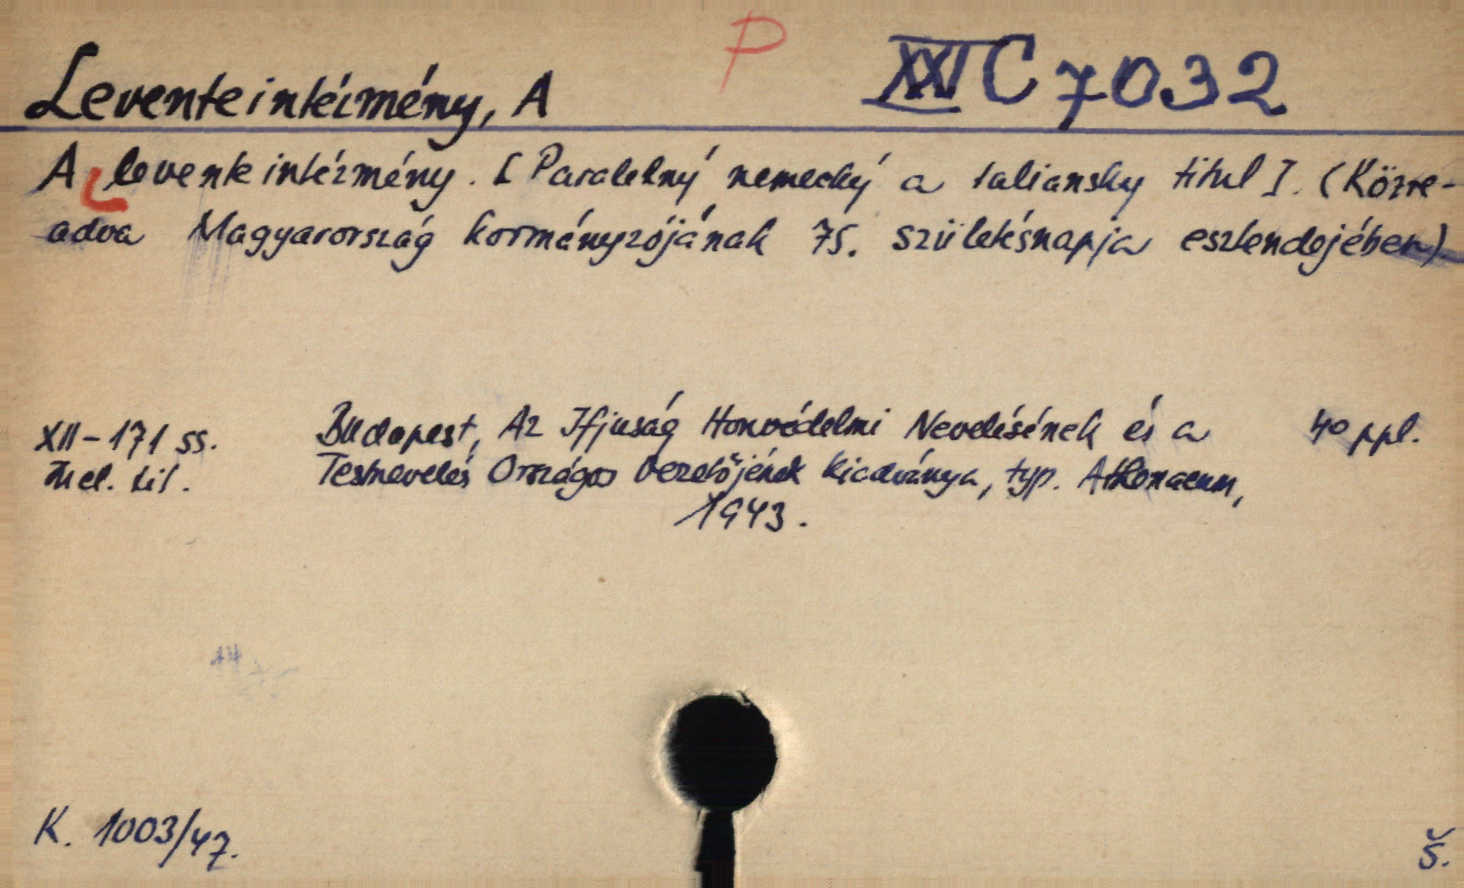 P
XXI C 7032
Leventeintézmény, A
A levente intézmény. [Paralelný nemecký a taliansky titul]. (Közre-
adva Magyarország kormányzójának 75. születésnapja esztendejében)
XII-171 ss. Budapest, Az Ifjuság Honvédelmi Nevelésének és a 4° ppl.
mel. tit. Testnevelés Országos Vezetőjének kiadványa, typ. Athenaeum,
1943.
K. 1003/47.
Š.